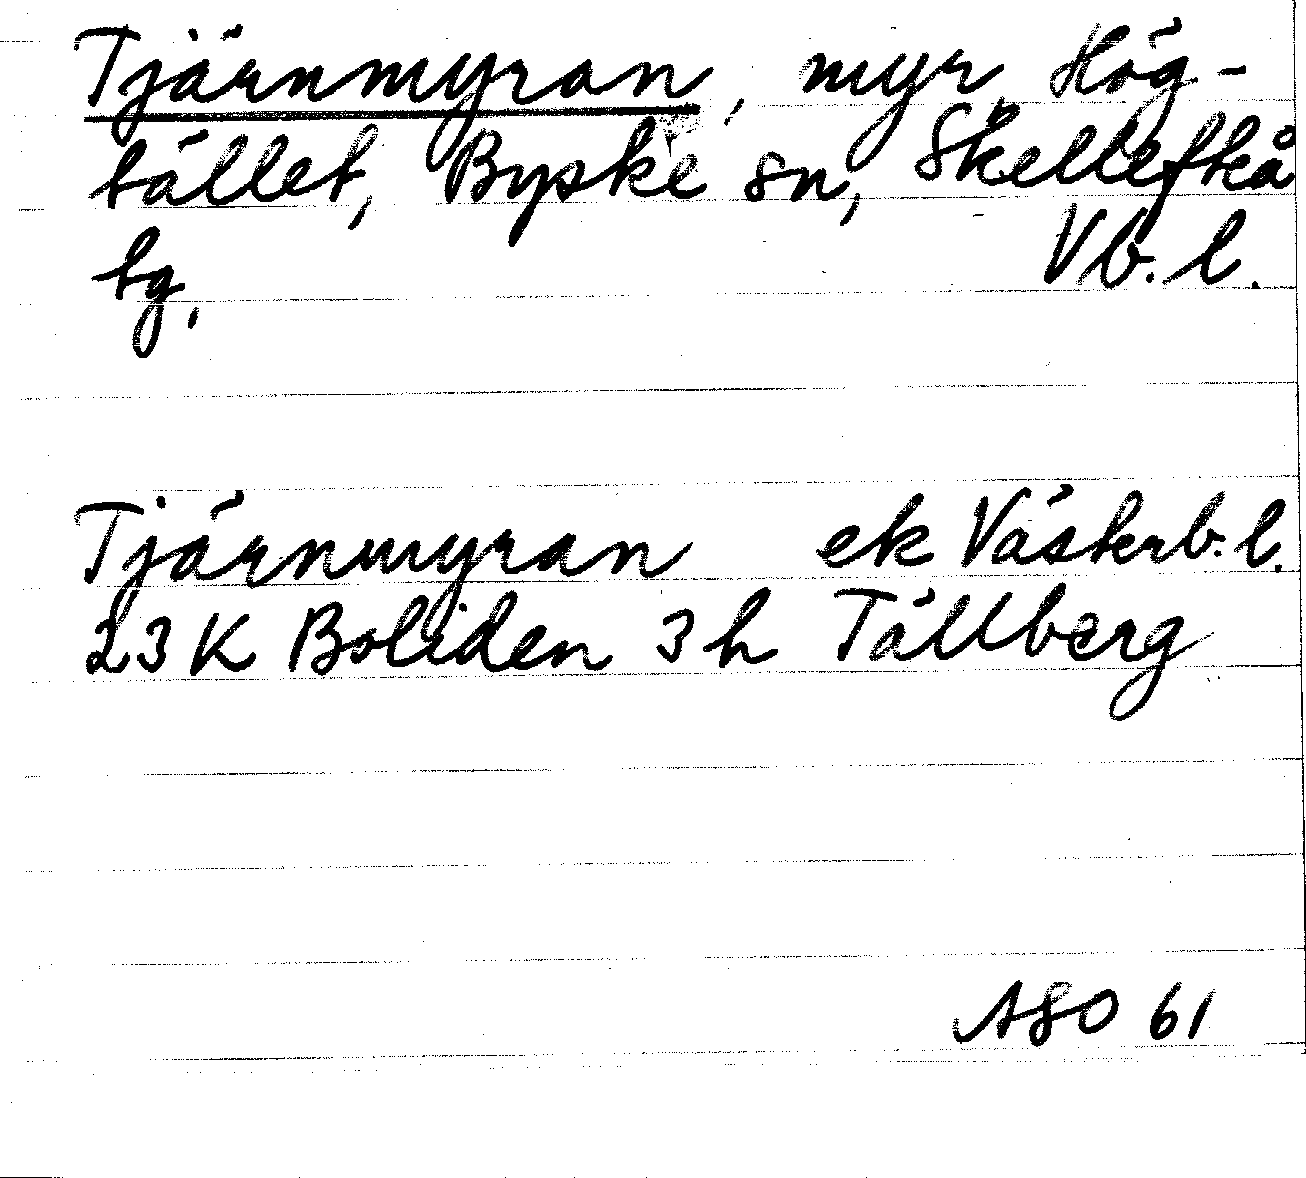 Tjärnmyran, myr, Hög-
tället, Byske sn, Skellefteå
tg, Vb. l.
Tjärnmyran ek Västerb. l.
23 K Boliden 3 h Tällberg
ASO 61